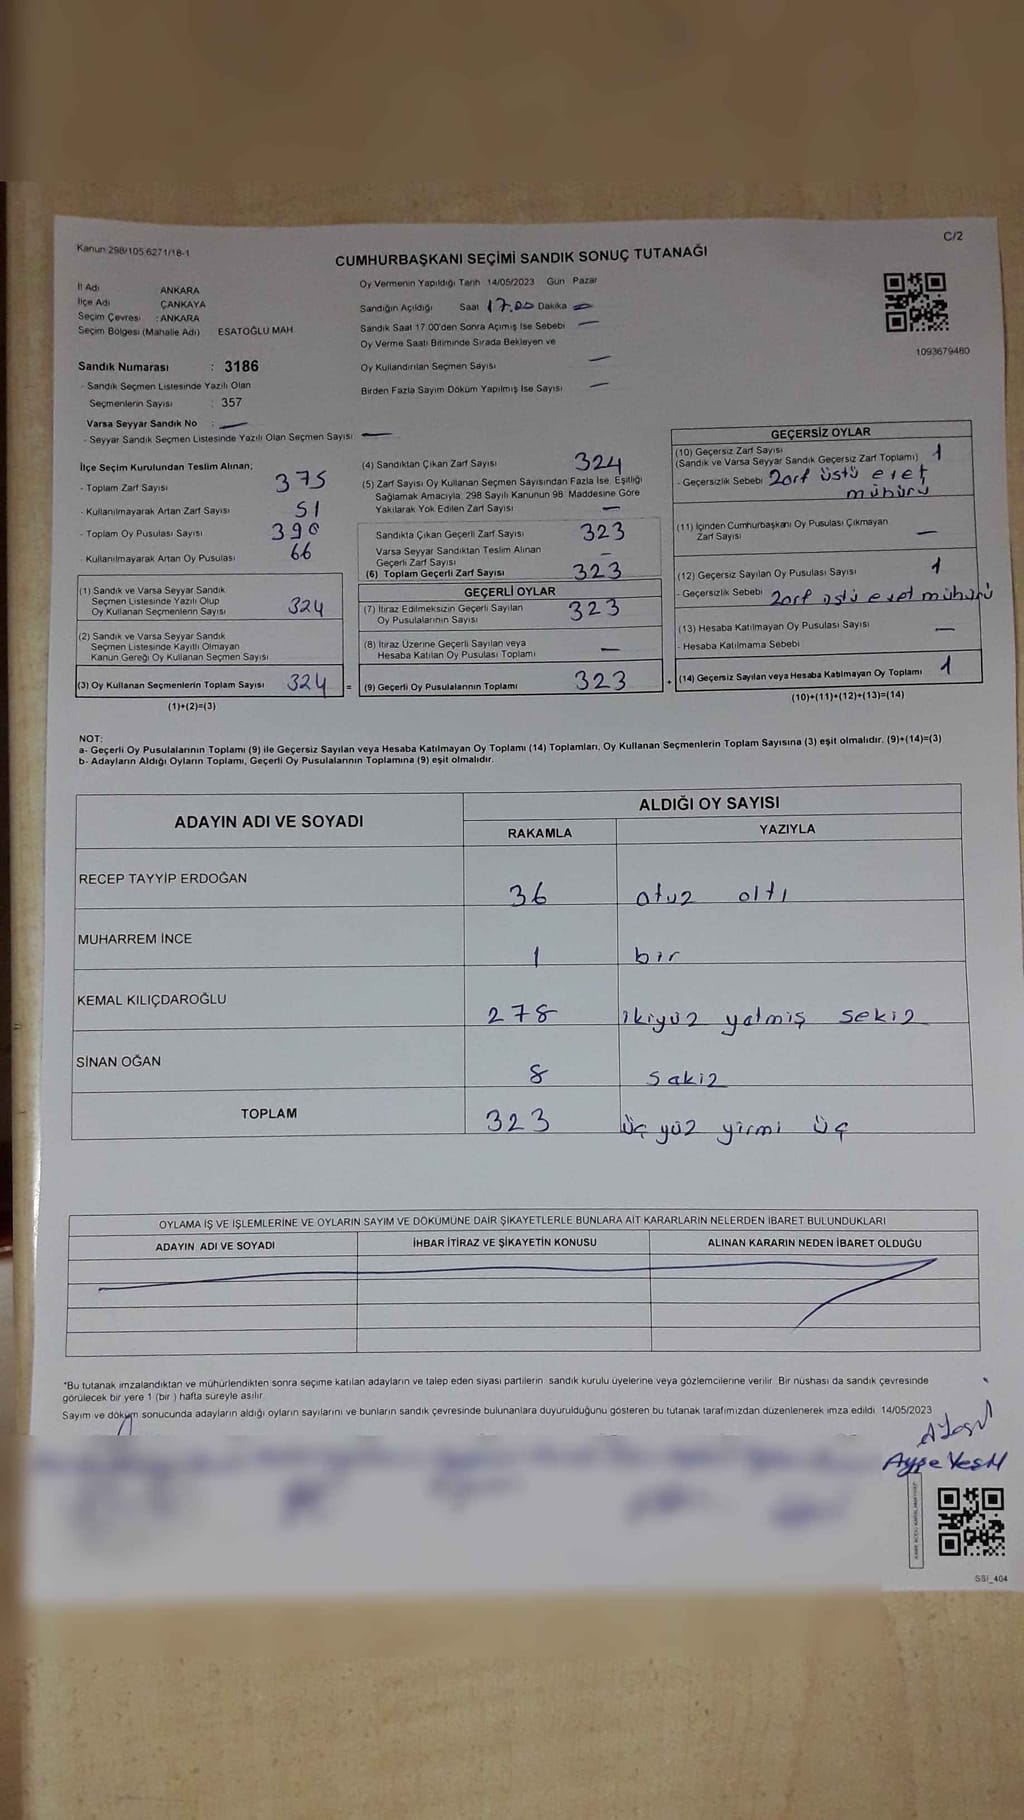 Kanun 298/105 6271/18-1
C/2
CUMHURBAŞKANI SEÇİMİ SANDIK SONUÇ TUTANAĞI
İl Adı ANKARA
İlçe Adı ÇANKAYA
Seçim Çevresi : ANKARA
Seçim Bölgesi (Mahalle Adı) ESATOĞLU MAH
Oy Vermenin Yapıldığı Tarih 14/05/2023 Gün Pazar
Sandığın Açıldığı Saat 17.00 Dakika —
Sandık Saat 17.00'den Sonra Açımış İse Sebebi —
Oy Verme Saati Bitiminde Sırada Bekleyen ve
Oy Kullandırılan Seçmen Sayısı —
Birden Fazla Sayım Döküm Yapılmış İse Sayısı —
1093679480
Sandık Numarası : 3186
- Sandık Seçmen Listesinde Yazılı Olan
Seçmenlerin Sayısı : 357
Varsa Seyyar Sandık No : —
- Seyyar Sandık Seçmen Listesinde Yazılı Olan Seçmen Sayısı —
İlçe Seçim Kurulundan Teslim Alınan;
- Toplam Zarf Sayısı 375
- Kullanılmayarak Artan Zarf Sayısı 51
- Toplam Oy Pusulası Sayısı 390
- Kullanılmayarak Artan Oy Pusulası 66
(1) Sandık ve Varsa Seyyar Sandık
Seçmen Listesinde Yazılı Olup
Oy Kullanan Seçmenlerin Sayısı 324
(2) Sandık ve Varsa Seyyar Sandık
Seçmen Listesinde Kayıtlı Olmayan
Kanun Gereği Oy Kullanan Seçmen Sayısı
(3) Oy Kullanan Seçmenlerin Toplam Sayısı 324 =
(1)+(2)=(3)
(4) Sandıktan Çıkan Zarf Sayısı 324
(5) Zarf Sayısı Oy Kullanan Seçmen Sayısından Fazla İse, Eşitliği
Sağlamak Amacıyla, 298 Sayılı Kanunun 98 Maddesine Göre
Yakılarak Yok Edilen Zarf Sayısı —
Sandıkta Çıkan Geçerli Zarf Sayısı 323
Varsa Seyyar Sandıktan Teslim Alınan
Geçerli Zarf Sayısı —
(6) Toplam Geçerli Zarf Sayısı 323
GEÇERLİ OYLAR
(7) İtiraz Edilmeksizin Geçerli Sayılan
Oy Pusulalarının Sayısı 323
(8) İtiraz Üzerine Geçerli Sayılan veya
Hesaba Katılan Oy Pusulası Toplamı —
(9) Geçerli Oy Pusulalarının Toplamı 323 +
GEÇERSİZ OYLAR
(10) Geçersiz Zarf Sayısı
(Sandık ve Varsa Seyyar Sandık Geçersiz Zarf Toplamı) 1
- Geçersizlik Sebebi Zarf üstü evet
mühürü
(11) İçinden Cumhurbaşkanı Oy Pusulası Çıkmayan
Zarf Sayısı —
(12) Geçersiz Sayılan Oy Pusulası Sayısı 1
- Geçersizlik Sebebi Zarf üstü evet mühürü
(13) Hesaba Katılmayan Oy Pusulası Sayısı —
- Hesaba Katılmama Sebebi
(14) Geçersiz Sayılan veya Hesaba Katılmayan Oy Toplamı 1
(10)+(11)+(12)+(13)=(14)
NOT:
a- Geçerli Oy Pusulalarının Toplamı (9) ile Geçersiz Sayılan veya Hesaba Katılmayan Oy Toplamı (14) Toplamları, Oy Kullanan Seçmenlerin Toplam Sayısına (3) eşit olmalıdır. (9)+(14)=(3)
b- Adayların Aldığı Oyların Toplamı, Geçerli Oy Pusulalarının Toplamına (9) eşit olmalıdır.
ADAYIN ADI VE SOYADI
ALDIĞI OY SAYISI
RAKAMLA YAZIYLA
RECEP TAYYİP ERDOĞAN 36 otuz altı
MUHARREM İNCE 1 bir
KEMAL KILIÇDAROĞLU 278 ikiyüz yetmiş sekiz
SİNAN OĞAN 8 sekiz
TOPLAM 323 üç yüz yirmi üç
OYLAMA İŞ VE İŞLEMLERİNE VE OYLARIN SAYIM VE DÖKÜMÜNE DAİR ŞİKAYETLERLE BUNLARA AİT KARARLARIN NELERDEN İBARET BULUNDUKLARI
ADAYIN ADI VE SOYADI İHBAR İTİRAZ VE ŞİKAYETİN KONUSU ALINAN KARARIN NEDEN İBARET OLDUĞU
*Bu tutanak imzalandıktan ve mühürlendikten sonra seçime katılan adayların ve talep eden siyasi partilerin sandık kurulu üyelerine veya gözlemcilerine verilir. Bir nüshası da sandık çevresinde
görülecek bir yere 1 (bir ) hafta süreyle asılır.
Sayım ve döküm sonucunda adayların aldığı oyların sayılarını ve bunların sandık çevresinde bulunanlara duyurulduğunu gösteren bu tutanak tarafımızdan düzenlenerek imza edildi. 14/05/2023
Ayşe Yeşil
SSI_404